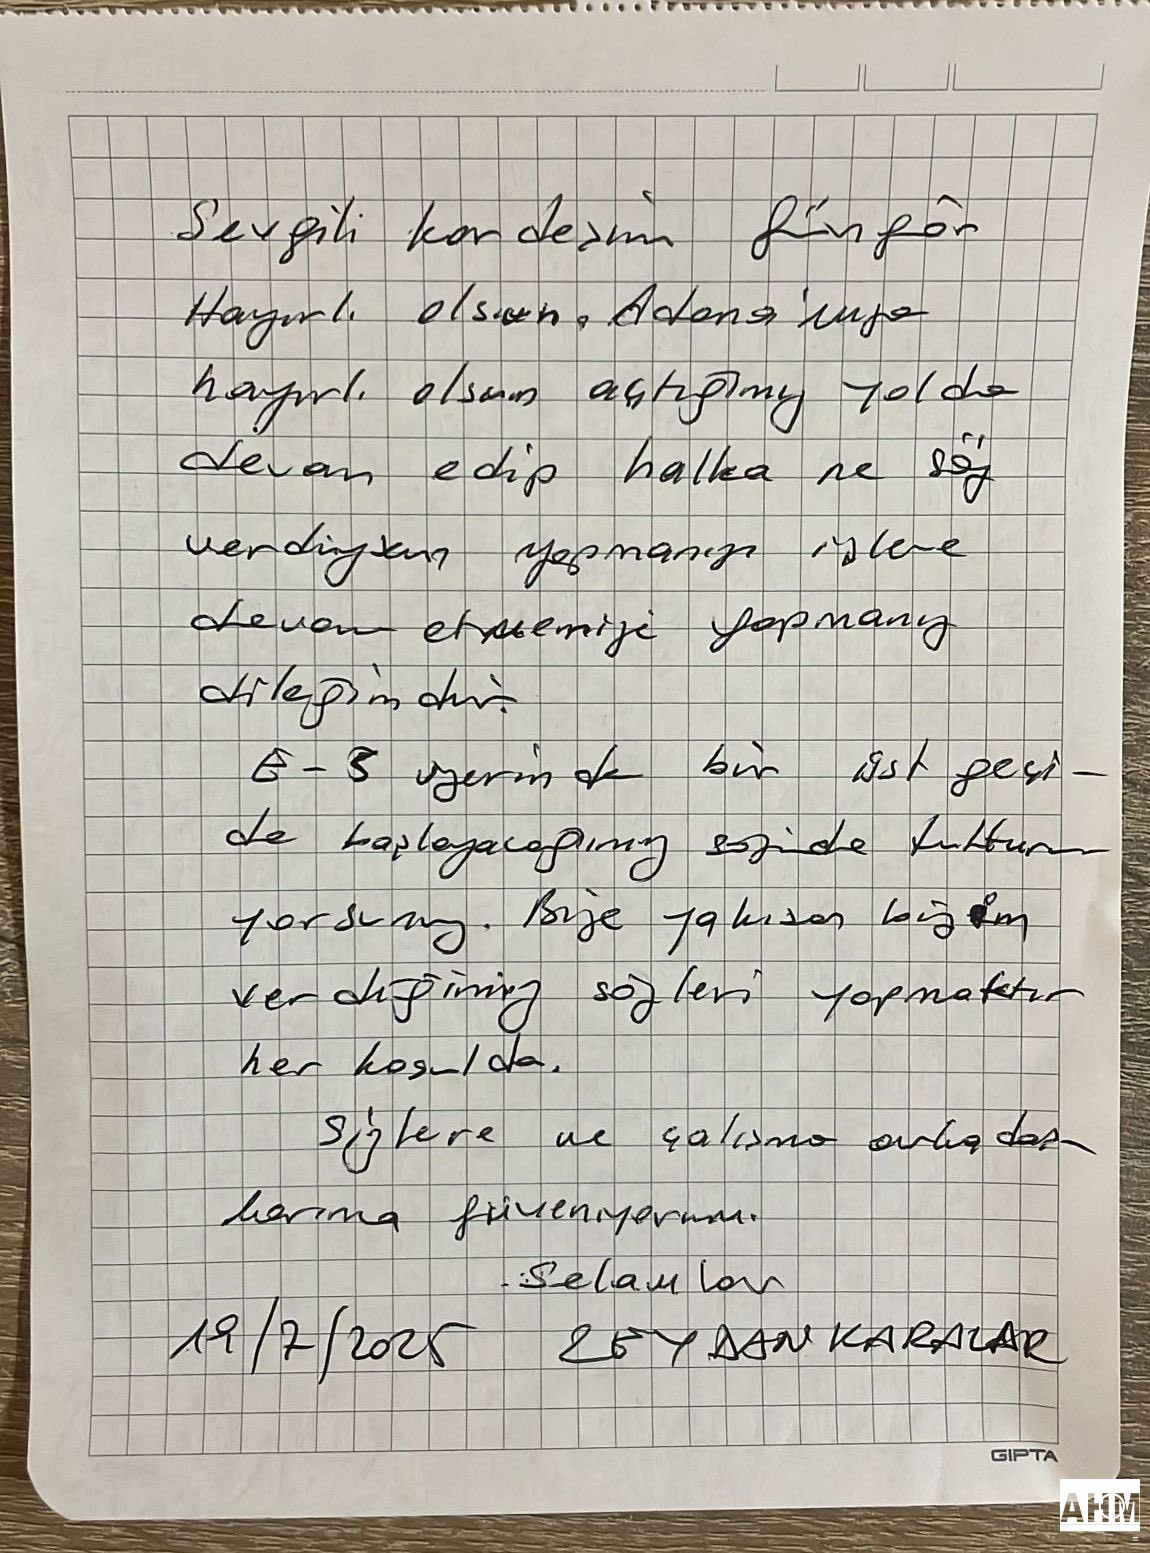 Sevgili kardeşim Güngör
Hayırlı olsun. Adana'mıza
hayırlı olsun açtığımız yolda
devam edip halka ne söz
verdiysem yapmanızı izlere
devam etmemizi yapmanız
dileğimdir.
E-5 üzerinde bir üst geçi-
de başlayacağımız sözünde
yorsunuz. Bize yakışan bizim
verdiğimiz sözleri yapmaktır
her koşulda.
Sizlere ve çalışma arkadaş-
larıma güveniyorum.
Selamlar
19/7/2025 ZEYDAN KARALAR
GIPTA
AHM